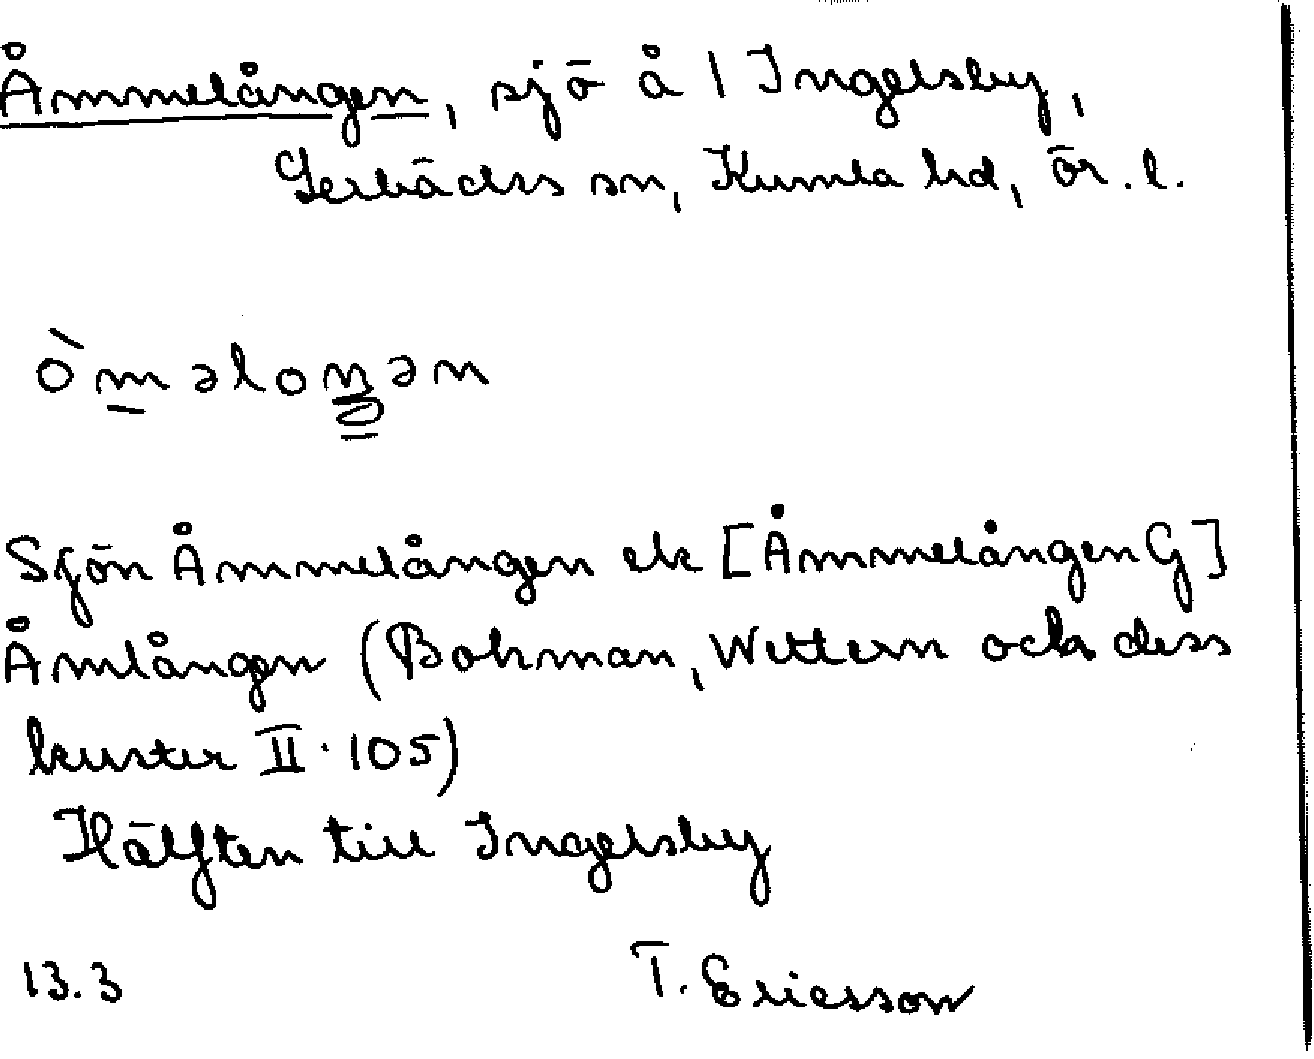 Åmmelången, sjö å 1 Ingelsby,
Lerbäcks sn, Kumla hd, Ör. l.
òmǝloŋǝn
Sjön Åmmelången ek [Åmmelången G]
Åmlången (Bohman, Wettern och dess
kuster II · 105)
Hälften till Ingelsby
13.3 T. Ericsson